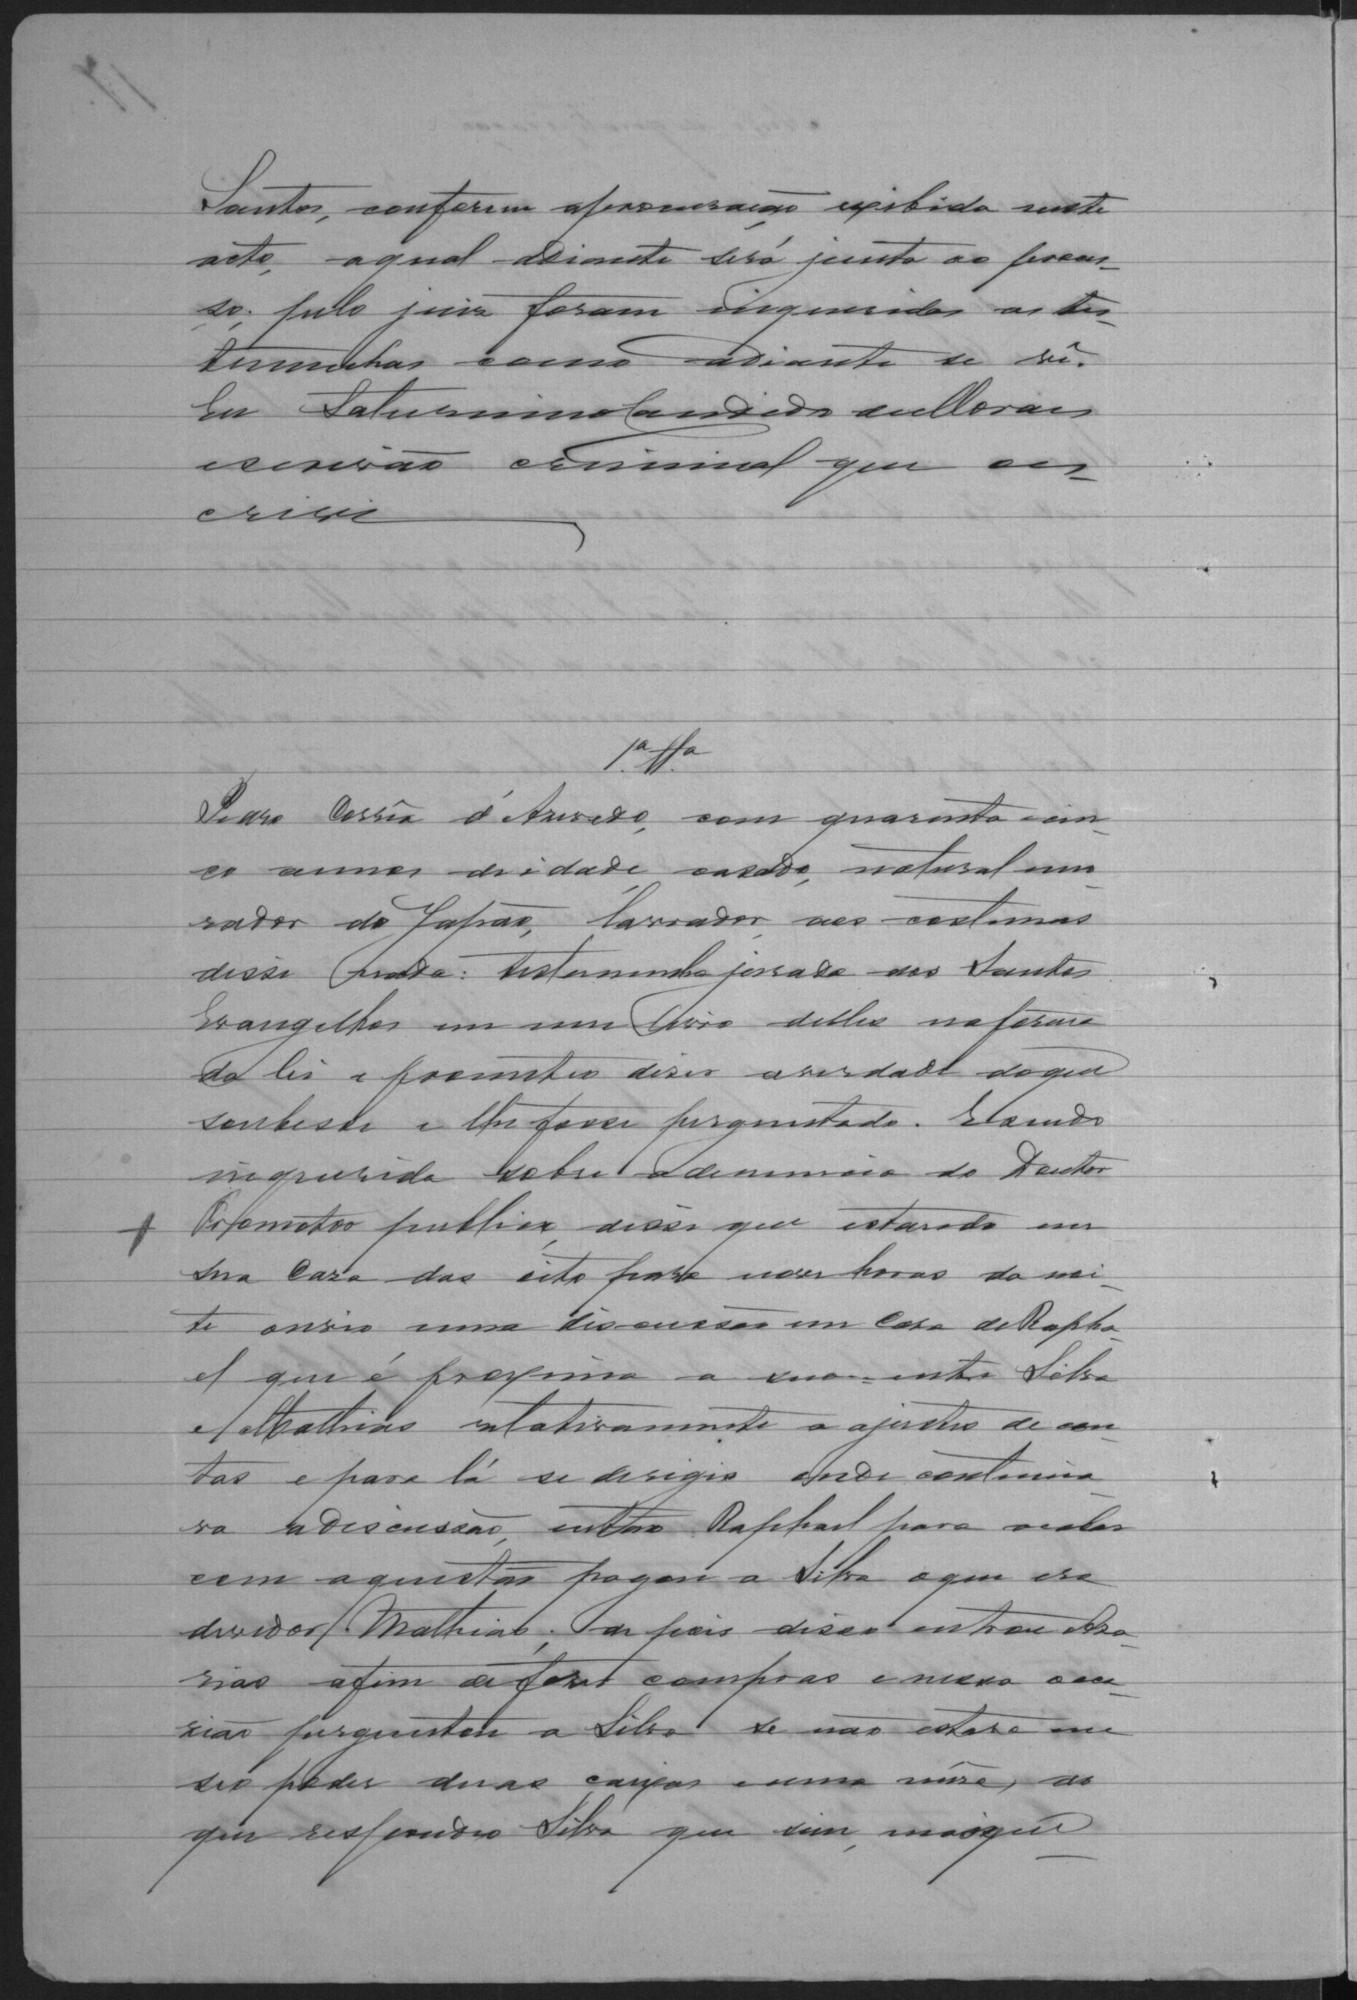 Santos, conforme a procuração exibida neste
acto, a qual adiante será junta ao proces-
so; pelo juiz foram inqueridas as tes-
temunhas como adiante se vê.
Eu Saturnino Candido de Moraes
escrivão criminal que es-
crivi
1ª ttª
Pedro Corrêa d'Azevedo, com quarenta cin-
co annos de idade, casado, natural mo-
rador do Japão, lavrador, aos costumes
disse nada: testemunha jurada aos Santos
Evangelhos em um livro delles na forma
da lei e prometteo diser a verdade do que
soubesse e lhe fosse perguntado. E sendo
inquerida sobre a denuncia do Doutor
Promotor publico, disse que estando em
sua Casa das oito para nove horas da noi-
te ouvio uma discussão em Casa de Rapha-
el que é proxima a sua entre Silva
e Mathias relativamente a ajustes de con-
tas e para lá se derigio onde continua-
va a discussão, então Raphael para acabar
com a questão pagou a Silva o que era
devedor Mathias; depois disso entrou Aza-
rias afim de faser compras e nessa occa-
sião perguntou a Silva se não estava em
seo poder duas caixas e uma , ao
que respondeo Silva que sim, mas que